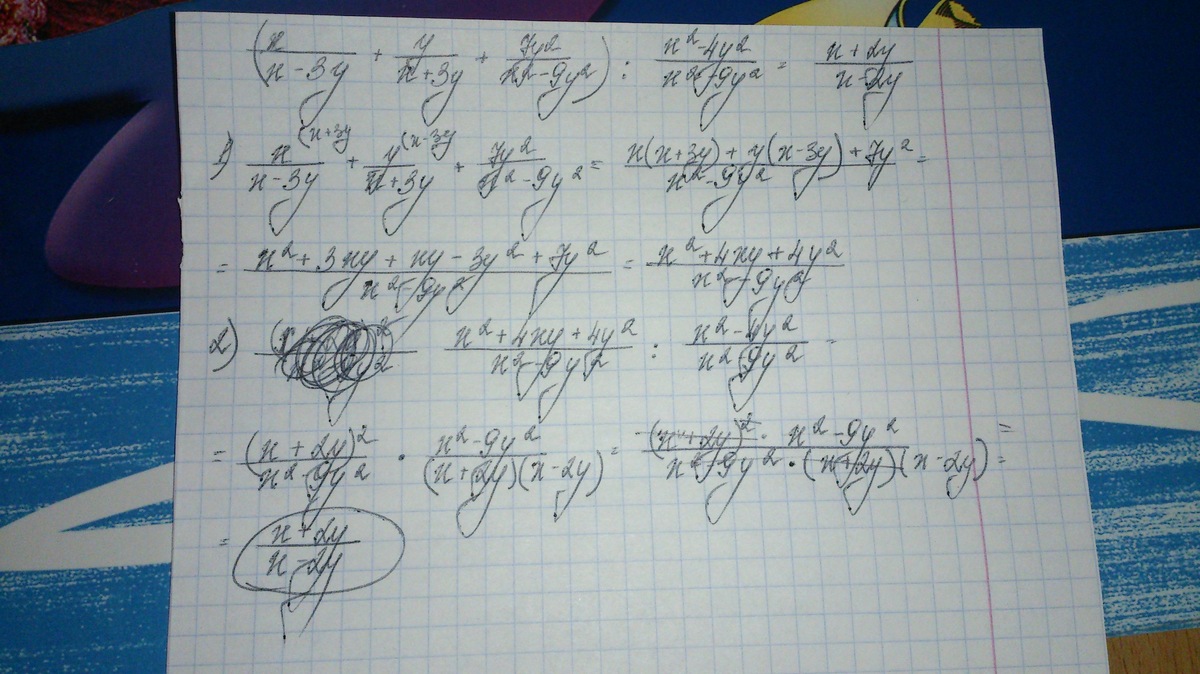 (x/(x-3y) + y/(x+3y) + 7y²/(x²-9y²)) : (x²-4y²)/(x²-9y²) = (x+2y)/(x-2y)
1) x^(x+3y/(x-3y) + y^(x-3y)/(x+3y) + 7y²/(x²-9y²) = (x(x+3y)+y(x-3y)+7y²)/(x²-9y²) =
= (x²+3xy+xy-3y²+7y²)/(x²-9y²) = (x²+4xy+4y²)/(x²-9y²)
2) (x²+4xy+4y²)/(x²-9y²) : (x²-4y²)/(x²-9y²) =
= (x+2y)²/(x²-9y²) · (x²-9y²)/((x+2y)(x-2y)) = ((x+2y)² · x²-9y²)/(x²-9y² · (x+2y)(x-2y)) =
= (x+2y)/(x-2y)